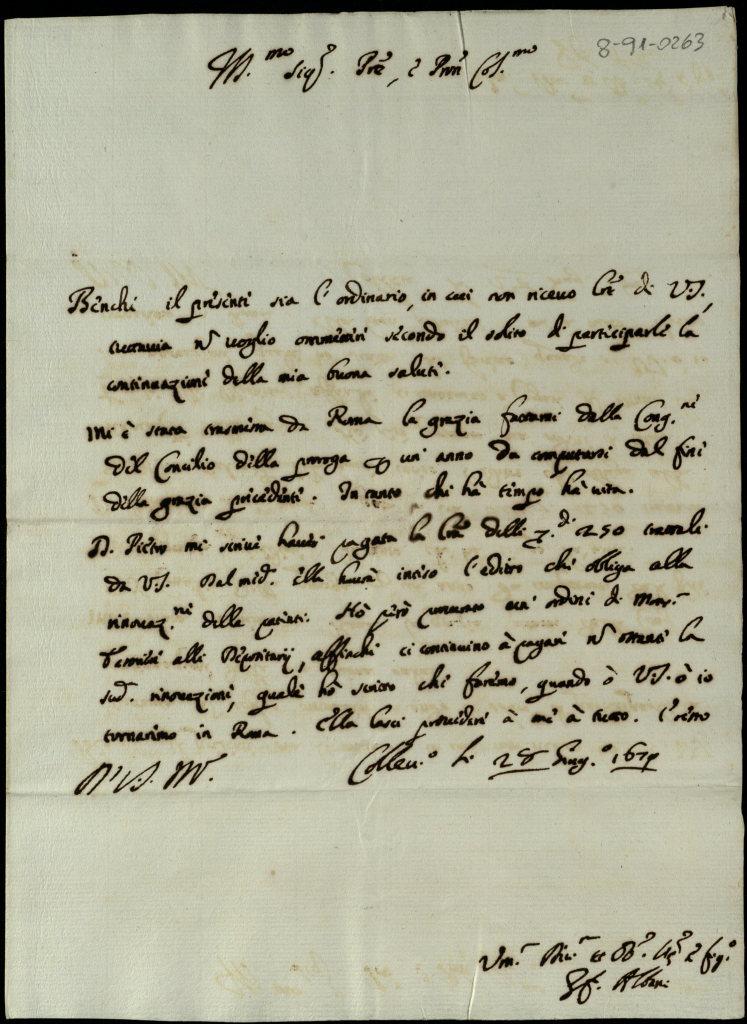 8-91-0263
Ill.mo Sig.r Pre, e Pron Col.mo
Benche il presente sia l'ordinario, in cui non ricevo lre di V.S.,
tuttavia nō voglio ommettere secondo il solito di participarle la
continuazione della mia buona salute.
Mi è stata trasmessa da Roma la grazia fattami dalla Cong.ne
del Concilio della proroga p un' anno da computarsi dal fine
della grazia precedente. In tanto chi hà tempo hà vita.
D. Pietro mi scrive haver pagata la lra delli 250 trattali
da V.S. Dal med. ella havrà inteso l'editto che obliga alla
rinovaz.ne della patente. Hò però procurato un' ordine di Mons.r
alli Depositarij, affinche ci continuino à pagare nō ostante la
sud. rinovazione, quale hò scritto che faremo, quando ò V.S. ò io
tornaremo in Roma. Ella lasci provedere à me à tutto. E resto
D. V.S. Ill.
Collev.o li 28 Giug.o
Um.o Div.o et Obb. e fig.o
Gf. Albani